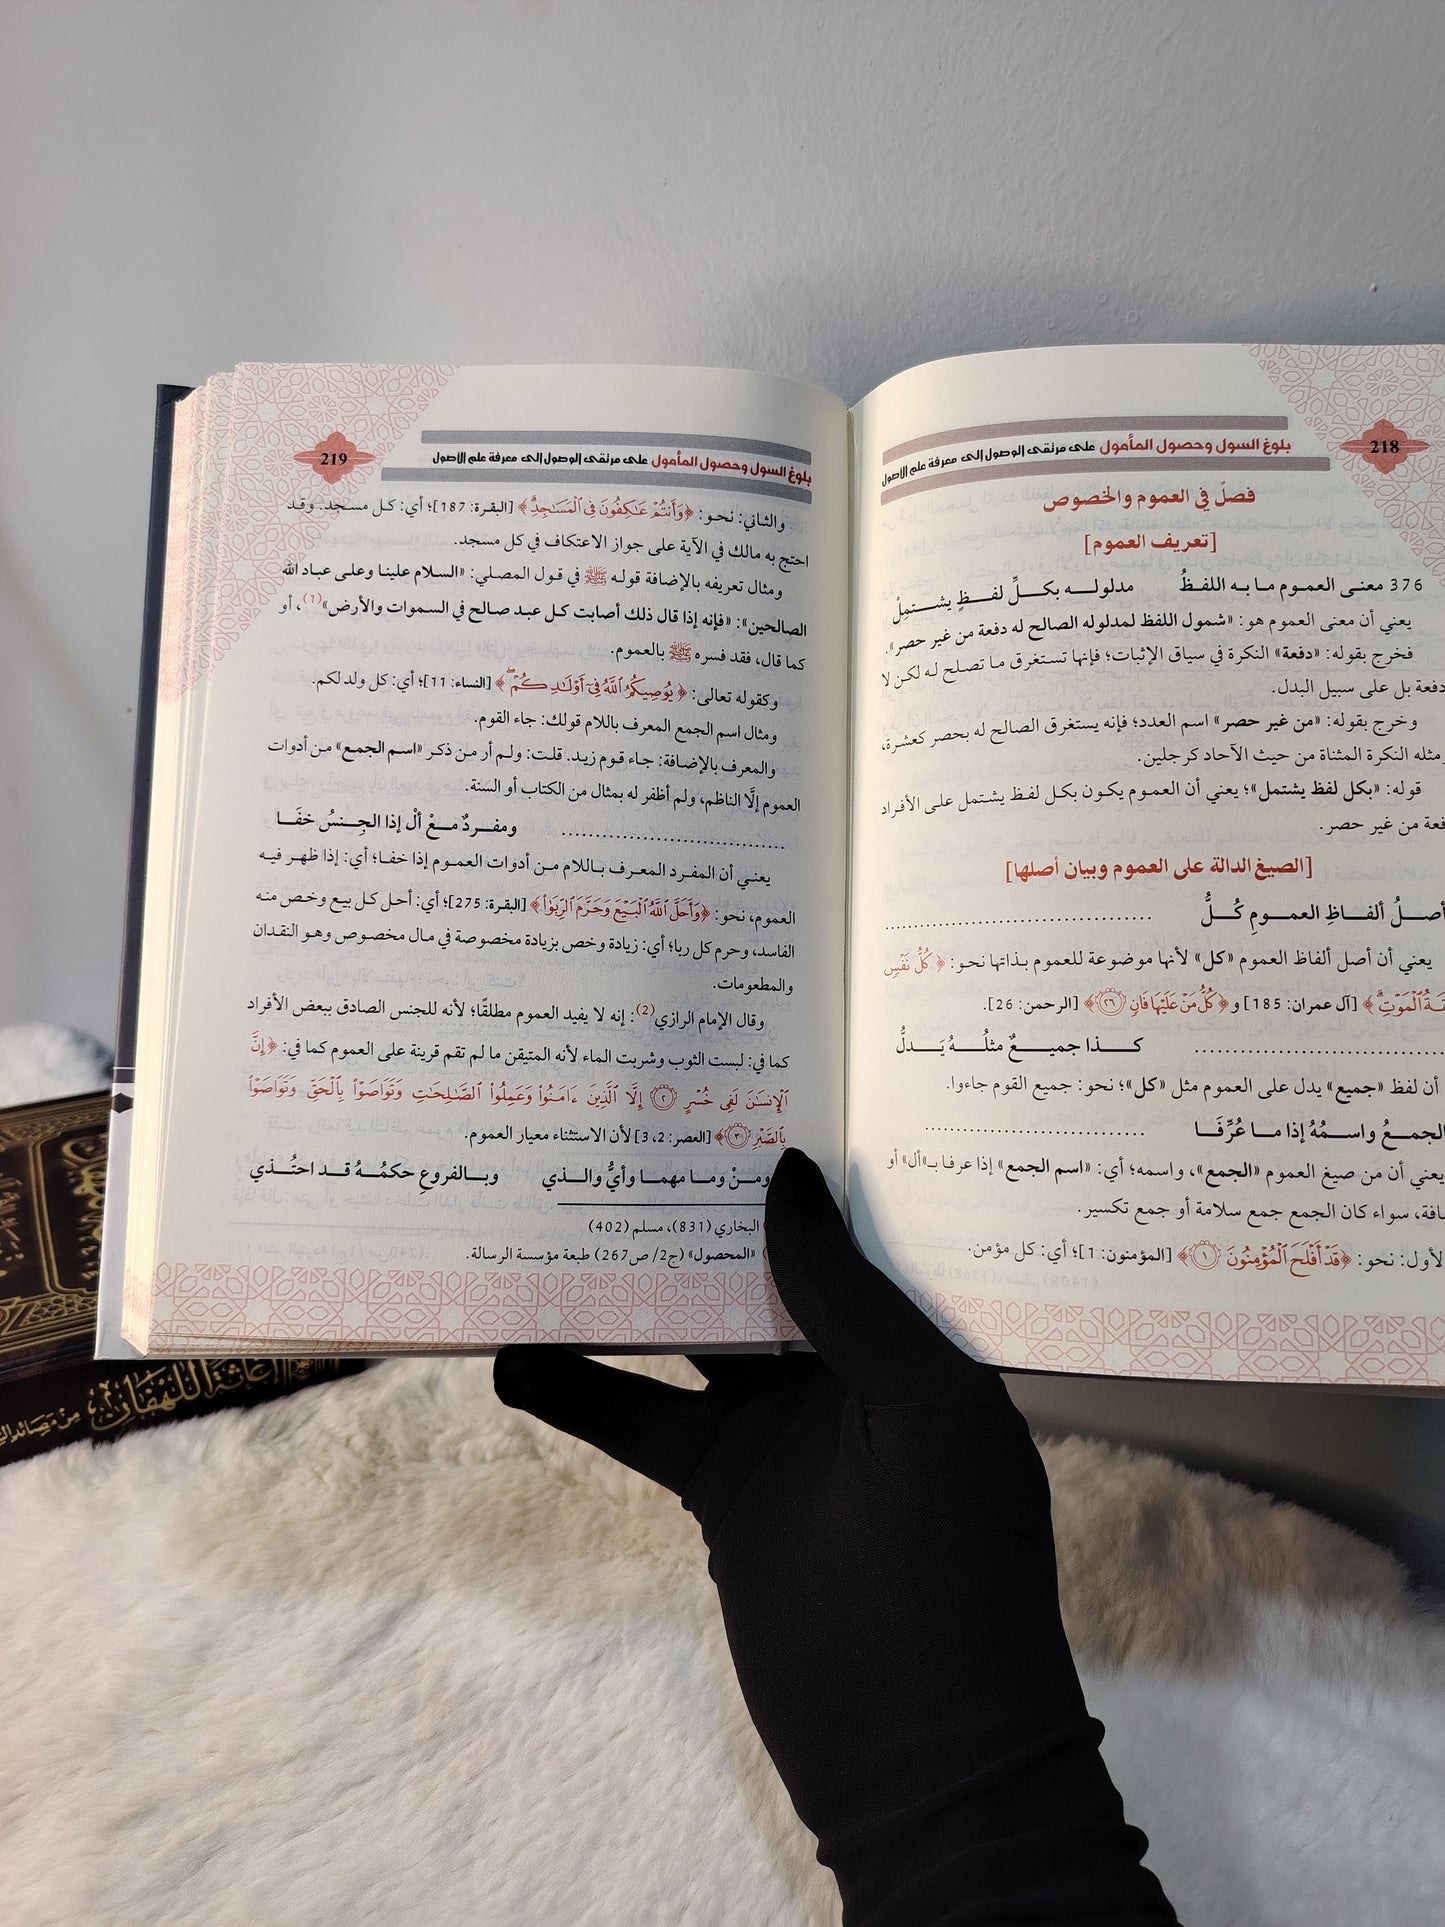 218
بلوغ السول وحصول المأمول على مرتقى الوصول إلى معرفة علم الأصول
فصلٌ في العموم والخصوص
[تعريف العموم]
376 معنى العموم ما به اللفظُ مدلوله بكلِّ لفظٍ يشتملْ
يعني أن معنى العموم هو: «شمول اللفظ لمدلوله الصالح له دفعة من غير حصر».
فخرج بقوله: «دفعة» النكرة في سياق الإثبات؛ فإنها تستغرق ما تصلح له لكن لا
دفعة بل على سبيل البدل.
وخرج بقوله: «من غير حصر» اسم العدد؛ فإنه يستغرق الصالح له بحصر كعشرة،
ومثله النكرة المثناة من حيث الآحاد كرجلين.
قوله: «بكل لفظ يشتمل»؛ يعني أن العموم يكون بكل لفظ يشتمل على الأفراد
دفعة من غير حصر.
[الصيغ الدالة على العموم وبيان أصلها]
أصلُ ألفاظِ العمومِ كُلُّ ..............................
يعني أن أصل ألفاظ العموم «كل» لأنها موضوعة للعموم بذاتها نحو: ﴿كُلُّ نَفْسٍ
الْمَوْتِ﴾ [آل عمران: 185] و﴿كُلُّ مَنْ عَلَيْهَا فَانٍ ٢٦﴾ [الرحمن: 26].
.............................. كذا جميعٌ مثلُهُ يَدلُّ
أن لفظ «جميع» يدل على العموم مثل «كل»؛ نحو: جميع القوم جاءوا.
الجمعُ واسمُهُ إذا ما عُرِّفَا ..............................
يعني أن من صيغ العموم «الجمع»، واسمه؛ أي: «اسم الجمع» إذا عرفا بـ«أل» أو
سواء كان الجمع جمع سلامة أو جمع تكسير.
نحو: ﴿قَدْ أَفْلَحَ الْمُؤْمِنُونَ ١﴾ [المؤمنون: 1]؛ أي: كل مؤمن.
219
بلوغ السول وحصول المأمول على مرتقى الوصول إلى معرفة علم الأصول
والثاني: نحو: ﴿وَأَنتُمْ عَاكِفُونَ فِي الْمَسَاجِدِ﴾ [البقرة: 187]؛ أي: كل مسجد. وقد
احتج به مالك في الآية على جواز الاعتكاف في كل مسجد.
ومثال تعريفه بالإضافة قوله ﷺ في قول المصلي: «السلام علينا وعلى عباد الله
الصالحين»: «فإنه إذا قال ذلك أصابت كل عبد صالح في السموات والأرض»(1)، أو
كما قال، فقد فسره ﷺ بالعموم.
وكقوله تعالى: ﴿يُوصِيكُمُ اللَّهُ فِي أَوْلَادِكُمْ﴾ [النساء: 11]؛ أي: كل ولد لكم.
ومثال اسم الجمع المعرف باللام قولك: جاء القوم.
والمعرف بالإضافة: جاء قوم زيد. قلت: ولم أر من ذكر «اسم الجمع» من أدوات
العموم إلَّا الناظم، ولم أظفر له بمثال من الكتاب أو السنة.
.............................. ومفردٌ معْ ألْ إذا الجِنسُ خفَا
يعني أن المفرد المعرف باللام من أدوات العموم إذا خفا؛ أي: إذا ظهر فيه
العموم، نحو: ﴿وَأَحَلَّ اللَّهُ الْبَيْعَ وَحَرَّمَ الرِّبَوٰا﴾ [البقرة: 275]؛ أي: أحل كل بيع وخص منه
الفاسد، وحرم كل ربا؛ أي: زيادة وخص بزيادة مخصوصة في مال مخصوص وهو النقدان
والمطعومات.
وقال الإمام الرازي(2): إنه لا يفيد العموم مطلقًا؛ لأنه للجنس الصادق ببعض الأفراد
كما في: لبست الثوب وشربت الماء لأنه المتيقن ما لم تقم قرينة على العموم كما في: ﴿إِنَّ
الْإِنسَانَ لَفِي خُسْرٍ ٢ إِلَّا الَّذِينَ ءَامَنُوا وَعَمِلُوا الصَّالِحَاتِ وَتَوَاصَوْا بِالْحَقِّ وَتَوَاصَوْا
بِالصَّبْرِ ٣﴾ [العصر: 2، 3] لأن الاستثناء معيار العموم.
ومنْ وما مهما وأيُّ والذي وبالفروعِ حكمُهُ قد احتُذي
البخاري (831)، مسلم (402)
«المحصول» (ج2/ ص267) طبعة مؤسسة الرسالة.
إغاثة اللهفان